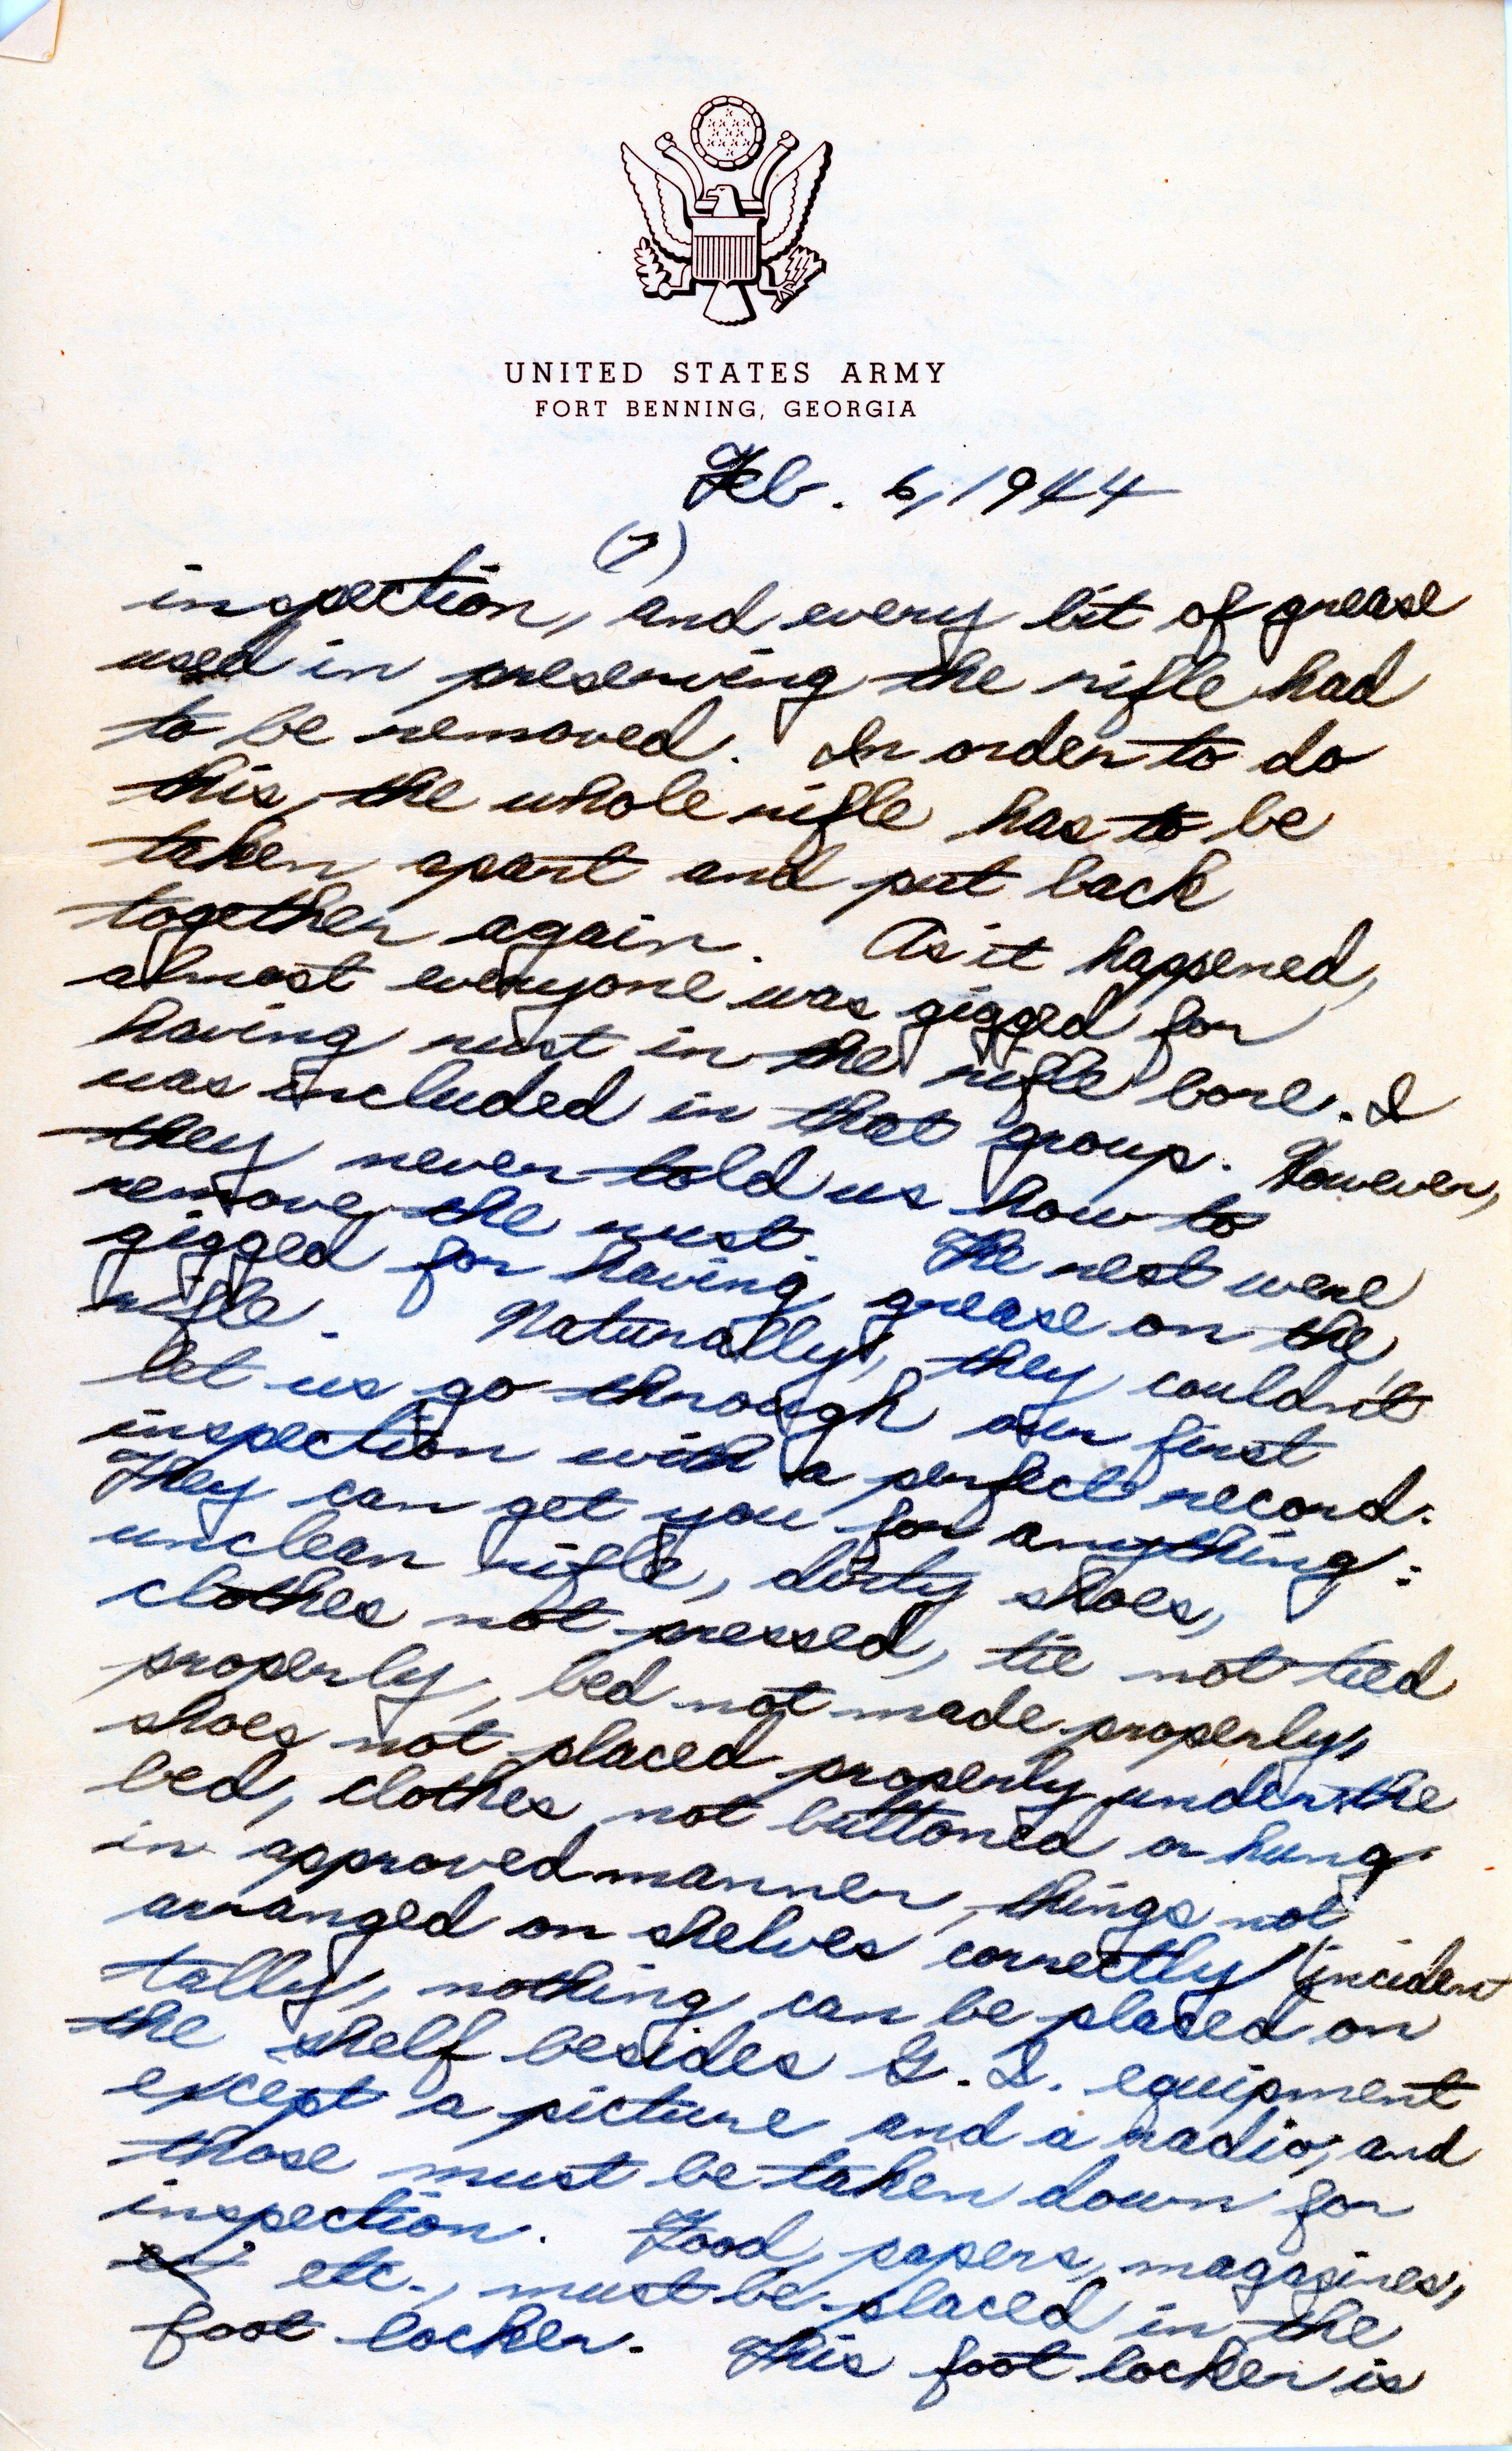 UNITED STATES ARMY
FORT BENNING, GEORGIA
Feb. 6, 1944
(7)
inspection, and every bit of grease
used in preserving the rifle had
to be removed. In order to do
this, the whole rifle has to be
taken apart and put back
together again. As it happened,
almost everyone was gigged for
having rust in the rifle bore. I
was included in that group. However,
they never told us how to
remove the rust. The rest were
gigged for having grease on the
rifle. Naturally, they couldn't
let us go through our first
inspection with a perfect record.
They can get you for anything:
unclean rifle, dirty shoes,
clothes not pressed, tie not tied
properly, bed not made properly,
shoes not placed properly under the
bed, clothes not buttoned or hung
in approved manner, things not
arranged on shelves correctly (inciden
tally, nothing can be placed on
the shelf besides G. I. equipment
except a picture and a radio, and
those must be taken down for
inspection. Food, papers, magazines,
etc., must be placed in the
foot locker. This foot locker is